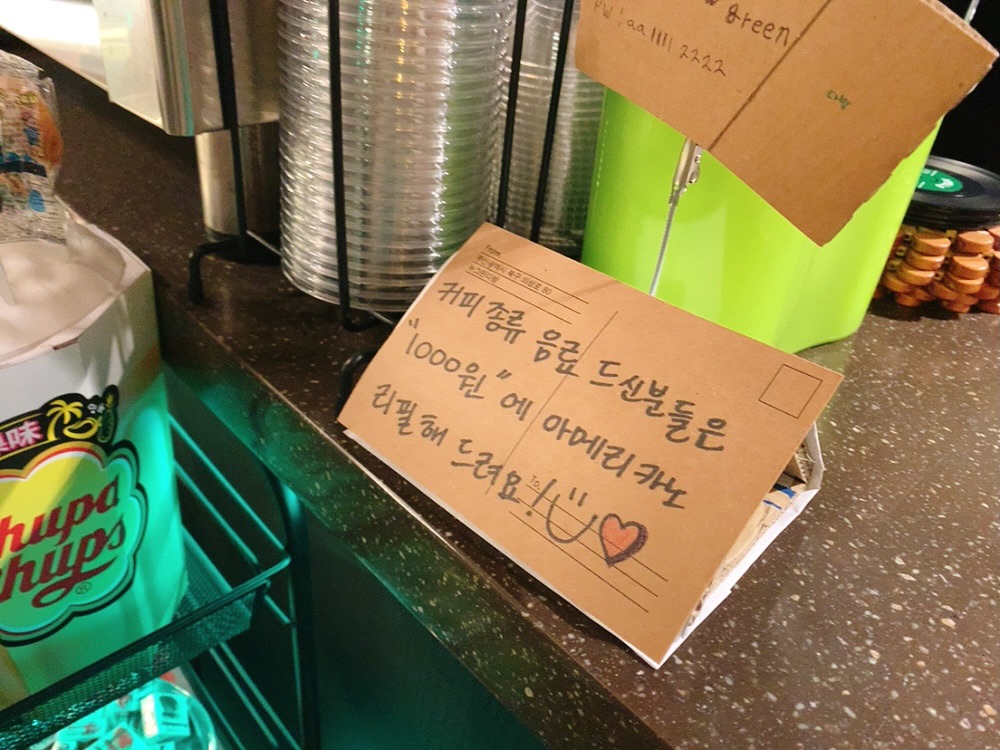 Green
PW : aa1111 2222
다방
From.
북구
80
커피 종류 음료 드신분들은
"1000원"에 아메리카노
리필해 드려요!
To.
味
Chupa
Chups
®